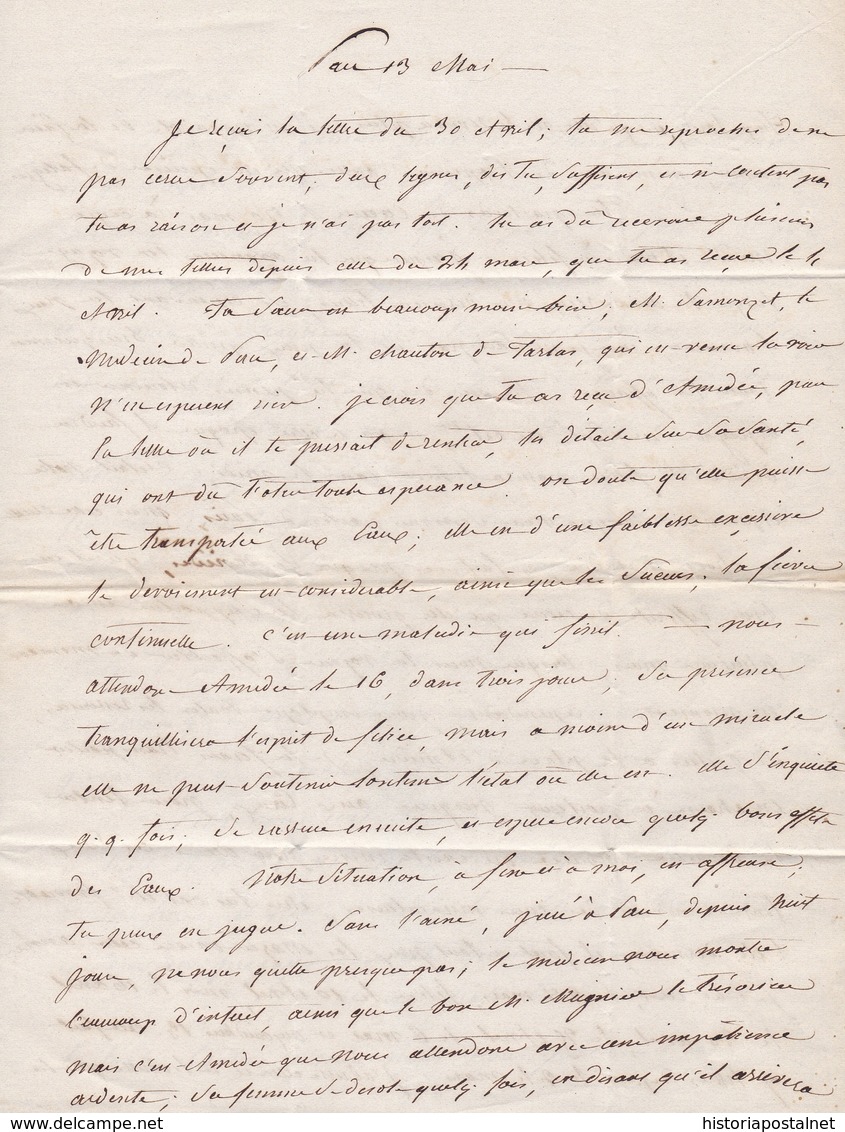 Pau 13 Mai —
Je reçois ta lettre du 30 Avril; tu me reproches de ne
pas écrire souvent; deux lignes, dis tu, suffisent, et ne coutent pas
tu as raison et je n'ai pas tort. tu as dû recevoir plusieurs
de mes lettres depuis celle du 24 mars, que tu as reçue le
Avril. Ta Sœur est beaucoup moins bien; M. Samonzet, le
Médecin de Pau, et M. chauton de Tartas, qui est venu la voir
N'en esperent rien. je crois que tu as reçu d'Amédée, par
la lettre où il te pressait de rentrer, les détails sur sa santé,
qui ont dû t'oter toute esperance. on doute qu'elle puisse
être transportée aux Eaux; elle est d'une faiblesse excessive
le devoiement est considerable, ainsi que les Sueurs, la fievre
continuelle. c'est une maladie qui finit. — nous —
attendons Amédée le 16, dans trois jours; sa présence
tranquillisera l'esprit de felice, mais a moins d'un miracle
elle ne peut soutenir l'état où elle est. elle s'inquiete
q.q. fois; se rassure ensuite, et espere encore quelq. bons effets
des Eaux. Notre situation, à et à moi, est affreuse;
tu peux en juger. Sans l'ainé, à Pau, depuis huit
jours, ne nous quitte presque pas; le médecin nous montre
beaucoup d'interet, ainsi que le bon M. Mugnier le trésorier
mais c'est Amédée que nous attendons avec une impatience
ardente; sa femme se desole quelq. fois, en disant qu'il arrivera
historiapostalnet